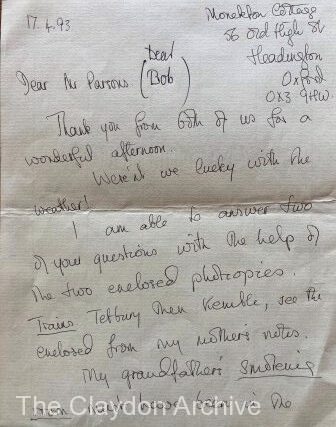 17.4.93
Monckton Cottage
56 Old High St
Headington
Oxford
OX3 9HW.
Dear Mr Parsons (Dear Bob)
Thank you from both of us for a
wonderful afternoon.
Weren't we lucky with the
weather!
I am able to answer two
of your questions with the help of
the two enclosed photocopies.
Trains Tetbury then Kemble, see the
enclosed from my mother's notes.
My grandfather's smoking
room must have been in the
The Claydon Archive